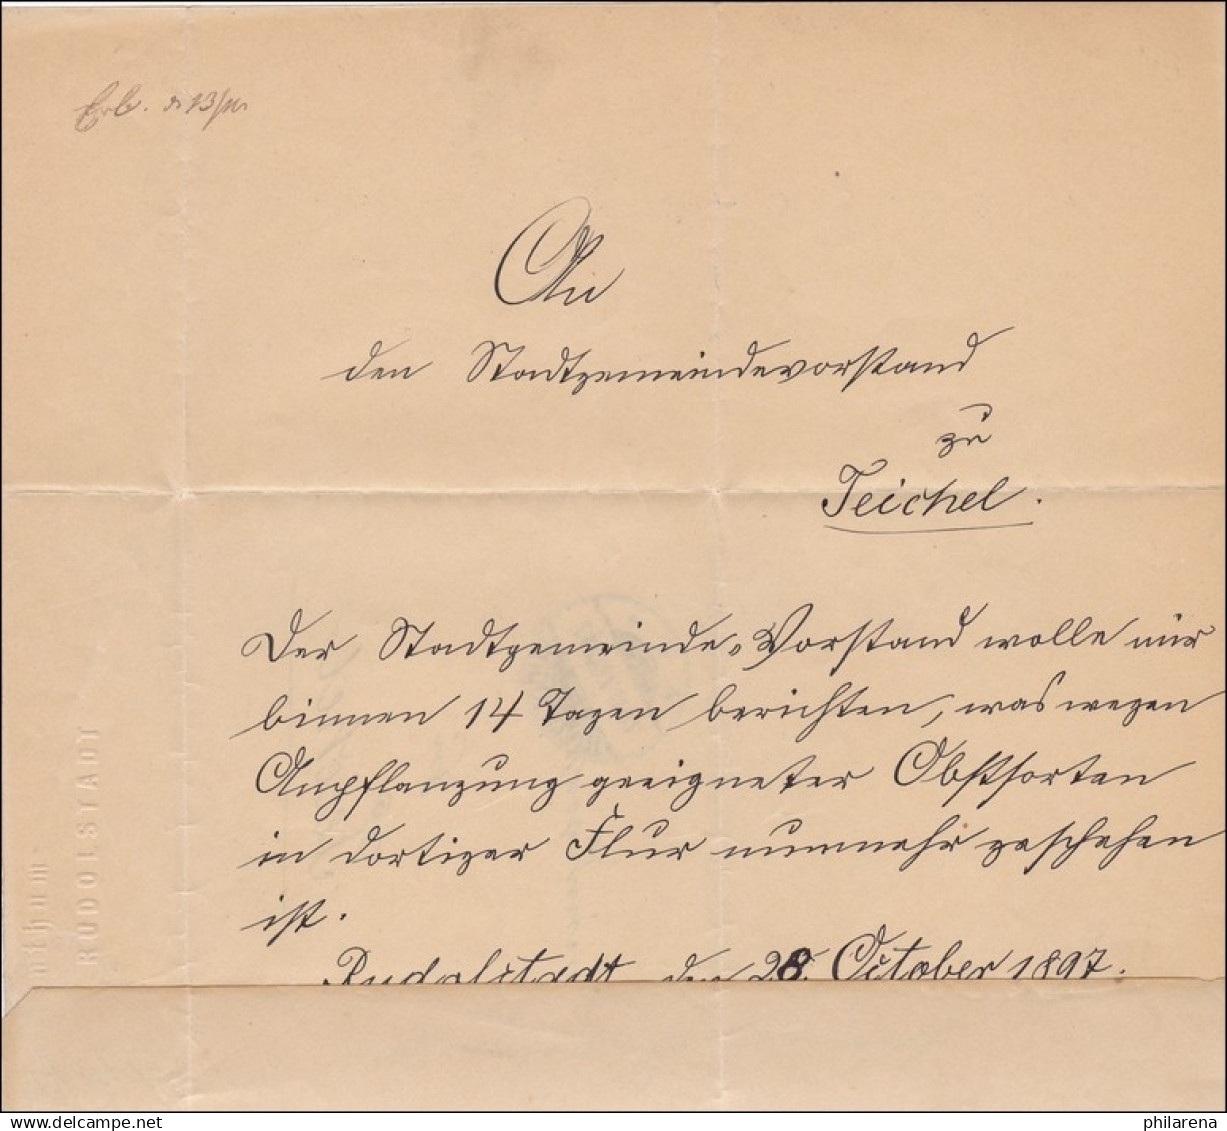 An
den Stadtgemeindevorstand
zu
Teichel.
Der Stadtgemeinde-Vorstand wolle nur
binnen 14 Tagen berichten, was wegen
Anpflanzung geeigneter Obstsorten
in dortiger Flur nunmehr geschehen
ist.
Rudolstadt den 28. October 1897.
RUDOLSTADT
delcampe.net
philarena